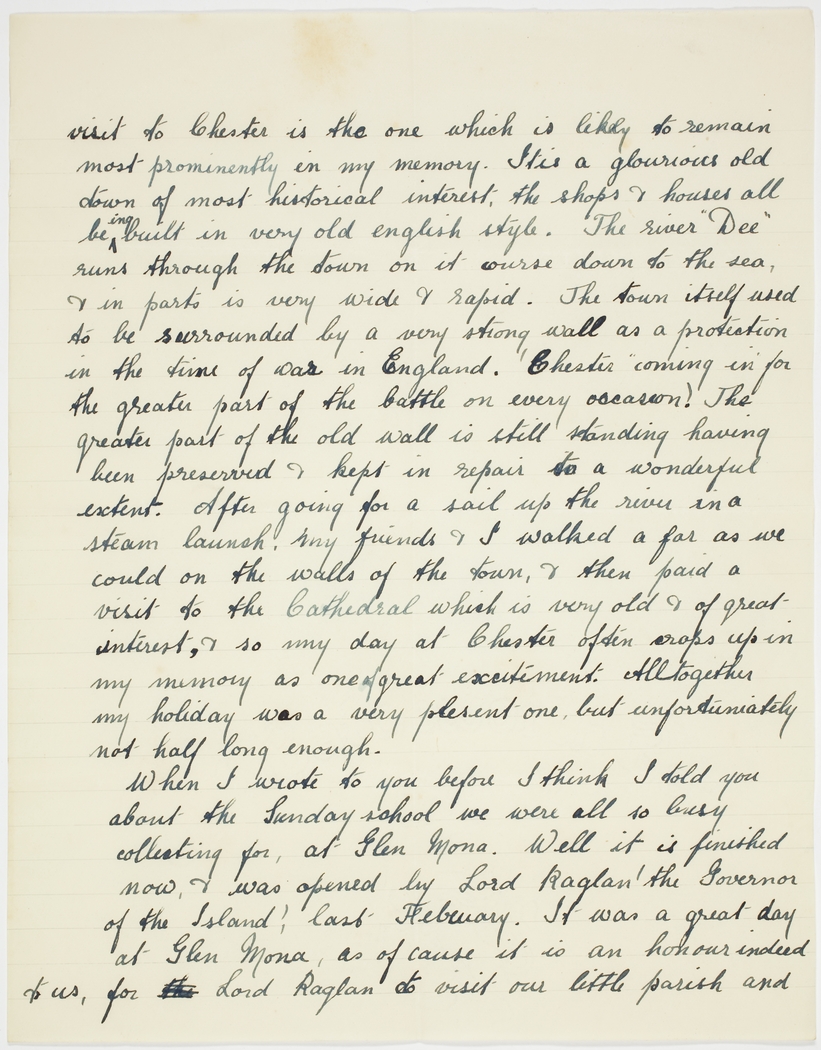 visit to Chester is the one which is likely to remain
most prominently in my memory. It is a glourious old
town of most historical interest, the shops & houses all
being built in very old english style. The river "Dee"
runs through the town on it course down to the sea,
& in parts is very wide & rapid. The town itself used
to be surrounded by a very strong wall as a protection
in the time of war in England. 'Chester "coming in" for
the greater part of the battle on every occasion! The
greater part of the old wall is still standing having
been preserved & kept in repair to a wonderful
extent. After going for a sail up the river in a
steam launch, my friends & I walked a far as we
could on the walls of the town, & then paid a
visit to the Cathedral which is very old & of great
interest, & so my day at Chester often crops up in
my memory as one of great excitement. Alltogether
my holiday was a very plesent one, but unfortuniately
not half long enough.
When I wrote to you before I think I told you
about the Sunday school we were all so busy
collecting for, at Glen Mona. Well it is finished
now, & was opened by Lord Raglan' the Governor
of the Island!, last February. It was a great day
at Glen Mona, as of cause it is an honour indeed
to us, for the Lord Raglan to visit our little parish and